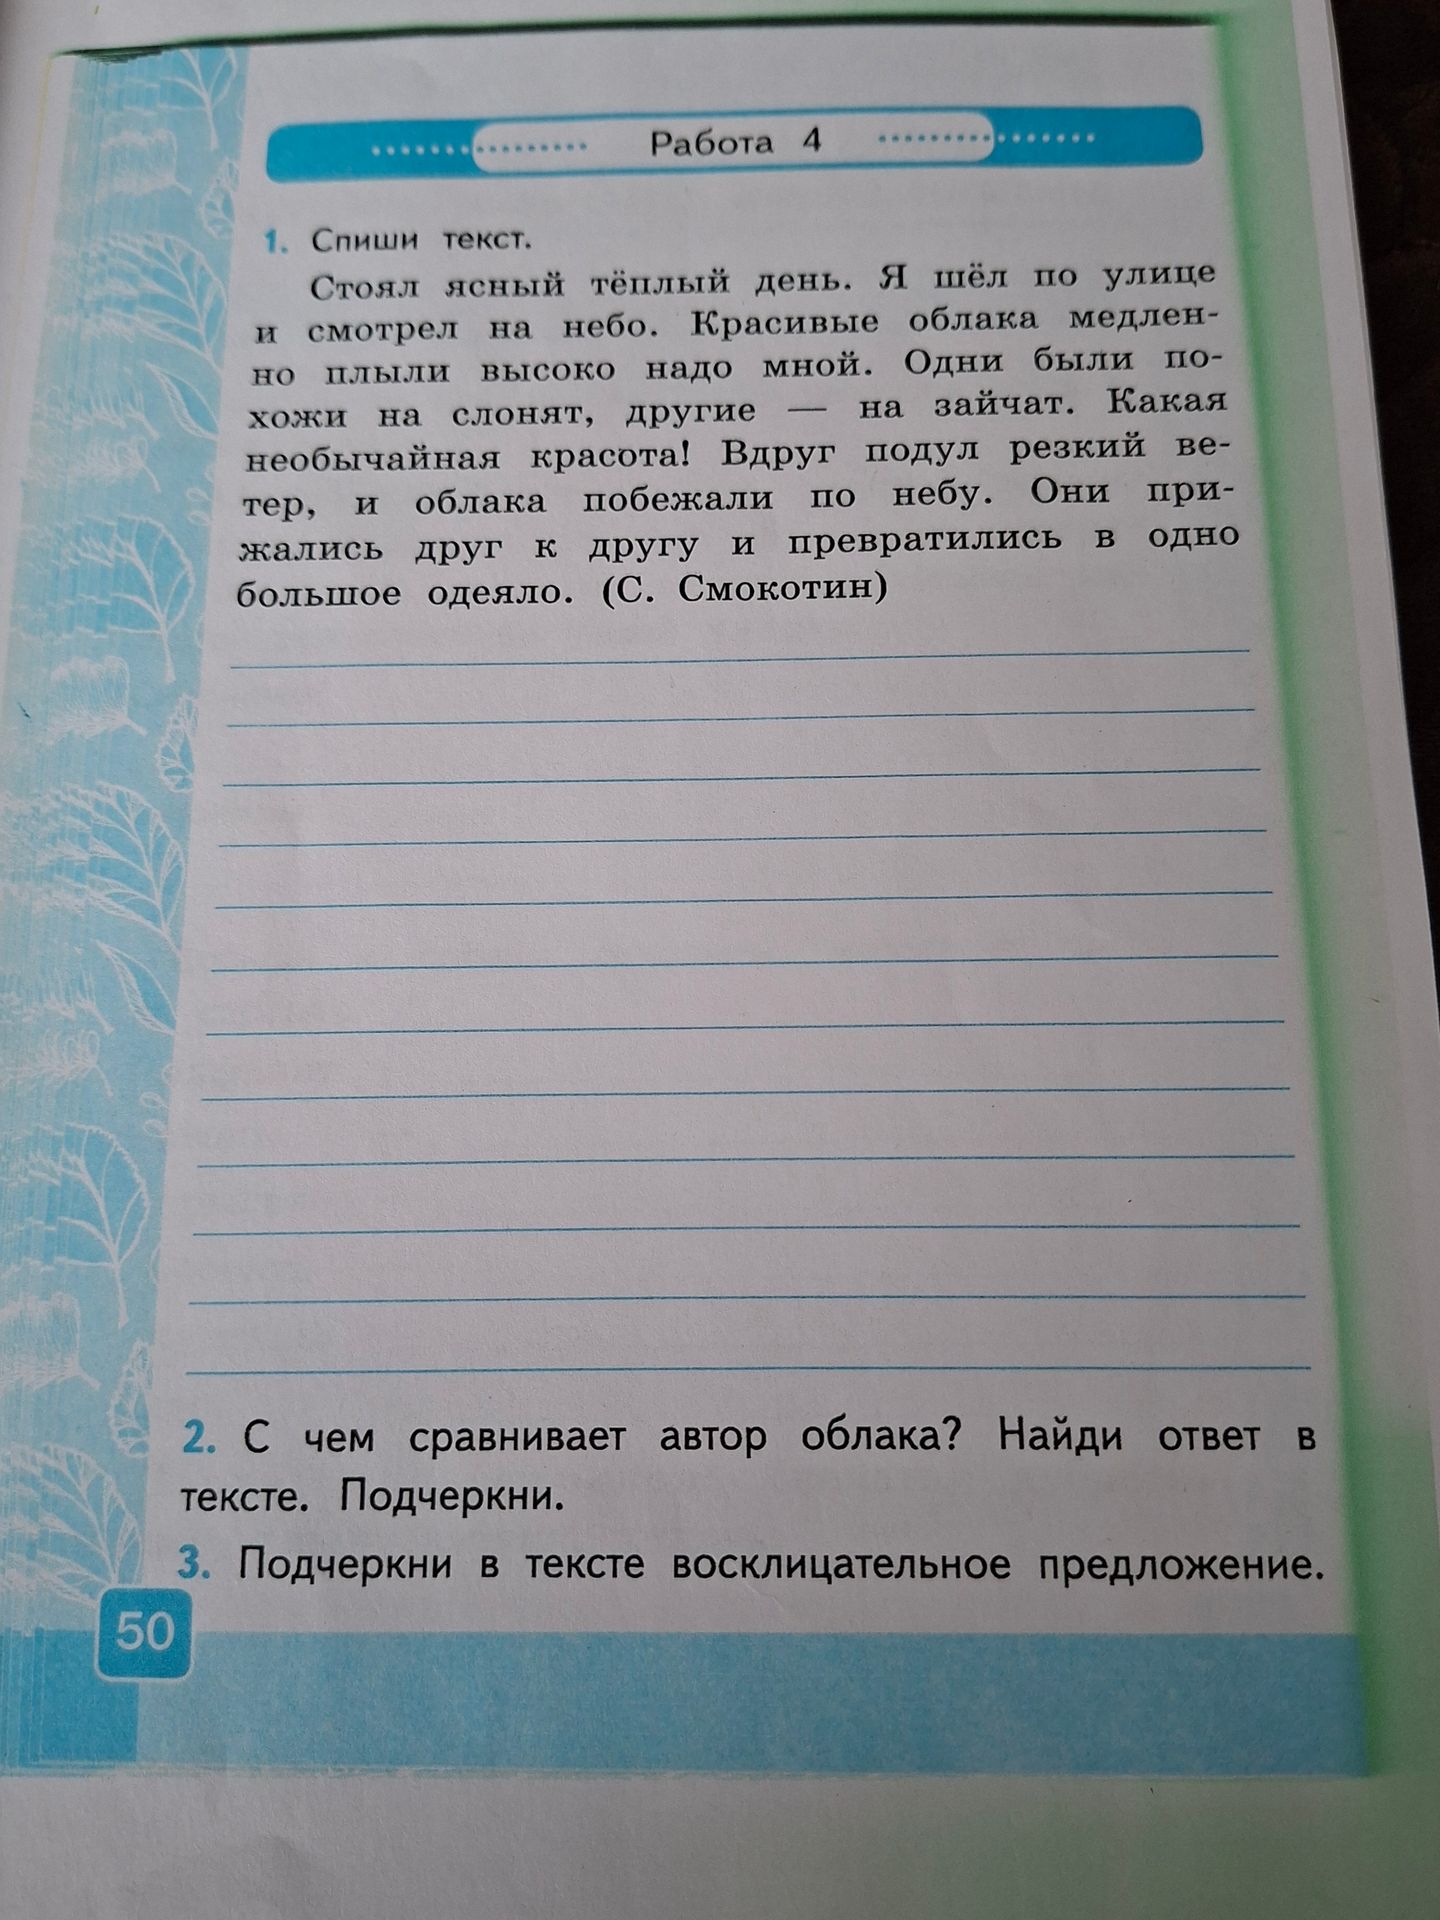 Работа 4
1. Спиши текст.
Стоял ясный тёплый день. Я шёл по улице
и смотрел на небо. Красивые облака медлен-
но плыли высоко надо мной. Одни были по-
хожи на слонят, другие — на зайчат. Какая
необычайная красота! Вдруг подул резкий ве-
тер, и облака побежали по небу. Они при-
жались друг к другу и превратились в одно
большое одеяло. (С. Смокотин)
2. С чем сравнивает автор облака? Найди ответ в
тексте. Подчеркни.
3. Подчеркни в тексте восклицательное предложение.
50